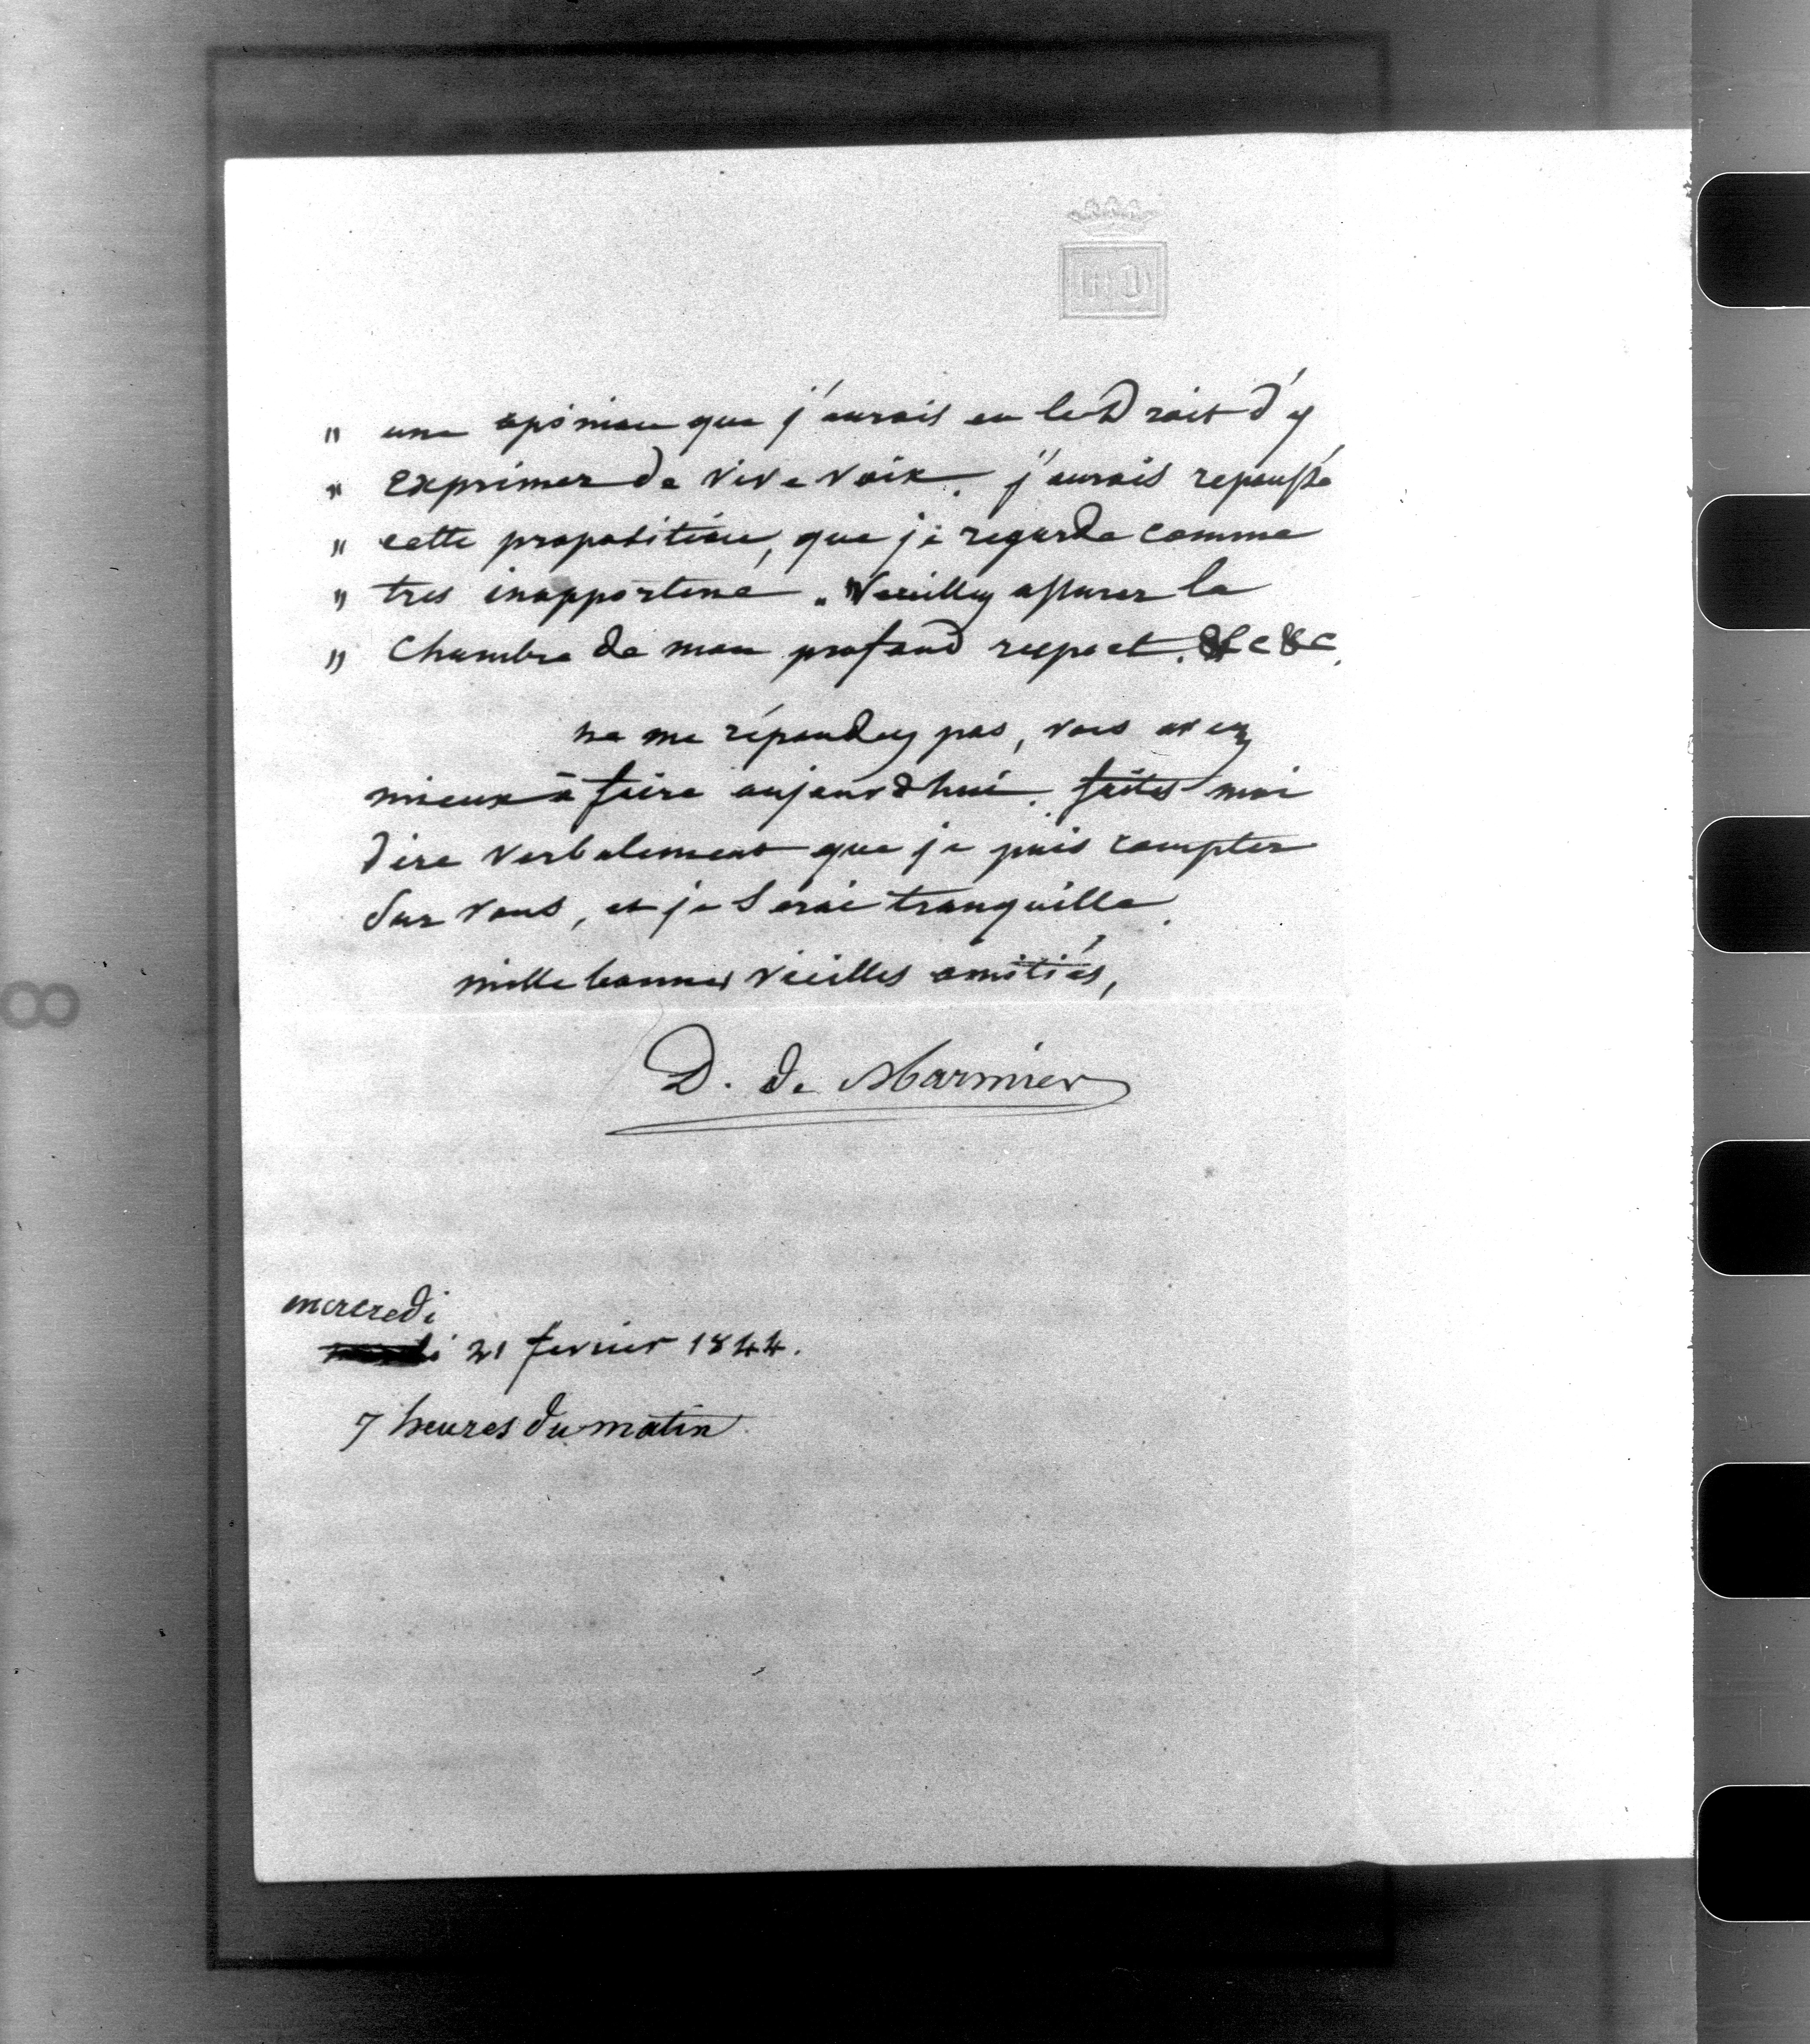 " une opinion que j'aurais eu le Droit d'y
" exprimer de vive voix. j'aurais repoussé
" cette proposition, que je regarde comme
" tres inopportune. "Veuillez assurer la
" Chambre de mon profond respect. &c &c.
ne me répondez pas, vous avez
mieux à faire aujourd'hui. faites moi
dire verbalement que je puis compter
sur vous, et je serai tranquille.
mille bonnes vieilles amitiés,
D. de Marmier
mercredi
21 fevrier 1844.
7 heures du matin.
8